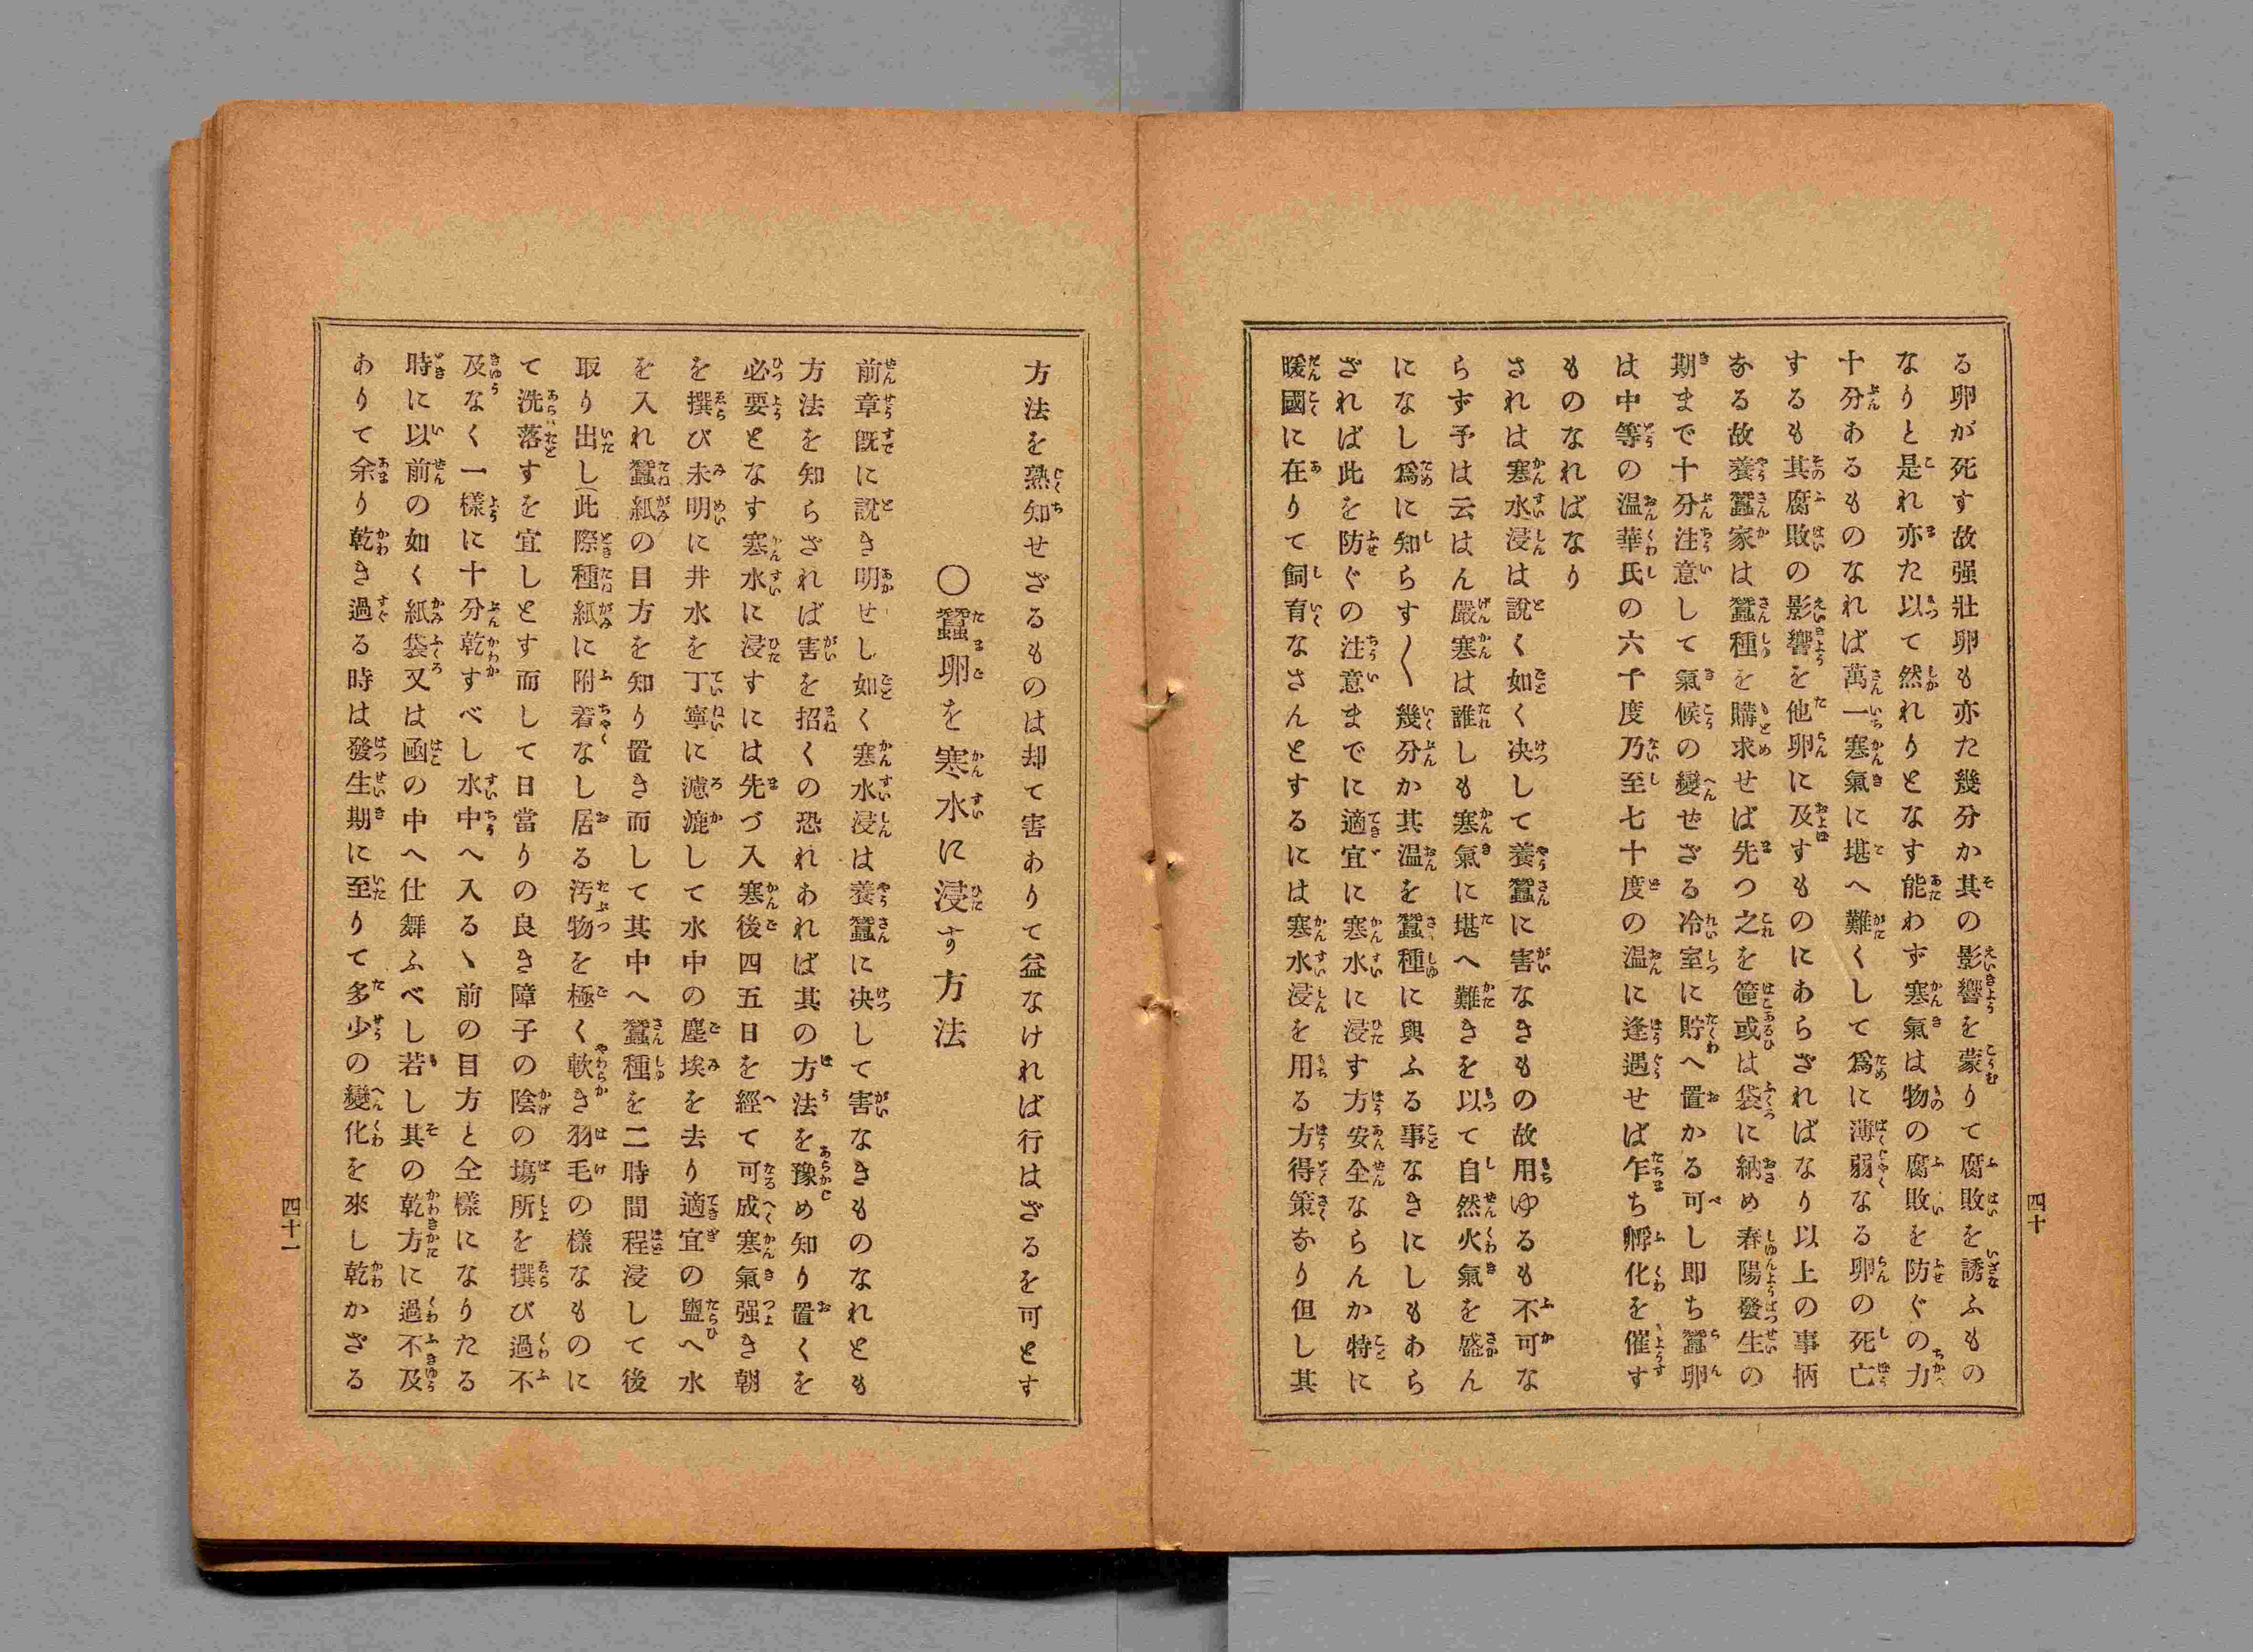 る卵が死す故强壯卵も亦た幾分か其の影響を蒙りて腐敗を誘ふもの
なりと是れ亦た以て然れりとなす能わず寒氣は物の腐敗を防ぐの力
十分あるものなれば萬一寒氣に堪へ難くして爲に薄弱なる卵の死亡
するも其腐敗の影響を他卵に及すものにあらざればなり以上の事柄
なる故養蠶家は蠶種を購求せば先つ之を篚或は袋に納め春陽發生の
期まで十分注意して氣候の變せざる冷室に貯へ置かる可し即ち蠶卵
は中等の溫華氏の六千度乃至七十度の溫に逢遇せば乍ち孵化を催す
ものなればなり
されは寒水浸は說く如く决して養蠶に害なきもの故用ゆるも不可な
らず予は云はん嚴寒は誰しも寒氣に堪へ難きを以て自然火氣を盛ん
になし爲に知らす〱幾分か其溫を蠶種に與ふる事なきにしもあら
ざれば此を防ぐの注意までに適宜に寒水に浸す方安全ならんか特に
暖國に在りて飼育なさんとするには寒水浸を用る方得策なり但し其
四十
方法を熟知せざるものは却て害ありて益なければ行はざるを可とす
〇蠶卵を寒水に浸す方法
前章旣に說き明せし如く寒水浸は養蠶に决して害なきものなれとも
方法を知らざれば害を招くの恐れあれば其の方法を豫め知り置くを
必要となす寒水に浸すには先づ入寒後四五日を經て可成寒氣强き朝
を撰び未明に井水を丁寧に濾漉して水中の塵埃を去り適宜の盥へ水
を入れ蠶紙の目方を知り置き而して其中へ蠶種を二時間程浸して後
取り出し(此際種紙に附着なし居る汚物を極く軟き羽毛の樣なものに
て洗落すを宜しとす而して日當りの良き障子の陰の塲所を撰び過不
及なく一樣に十分乾すべし水中へ入るヽ前の目方と仝樣になりたる
時に以前の如く紙袋又は凾の中へ仕舞ふべし若し其の乾方に過不及
ありて余り乾き過る時は發生期に至りて多少の變化を來し乾かざる
四十一